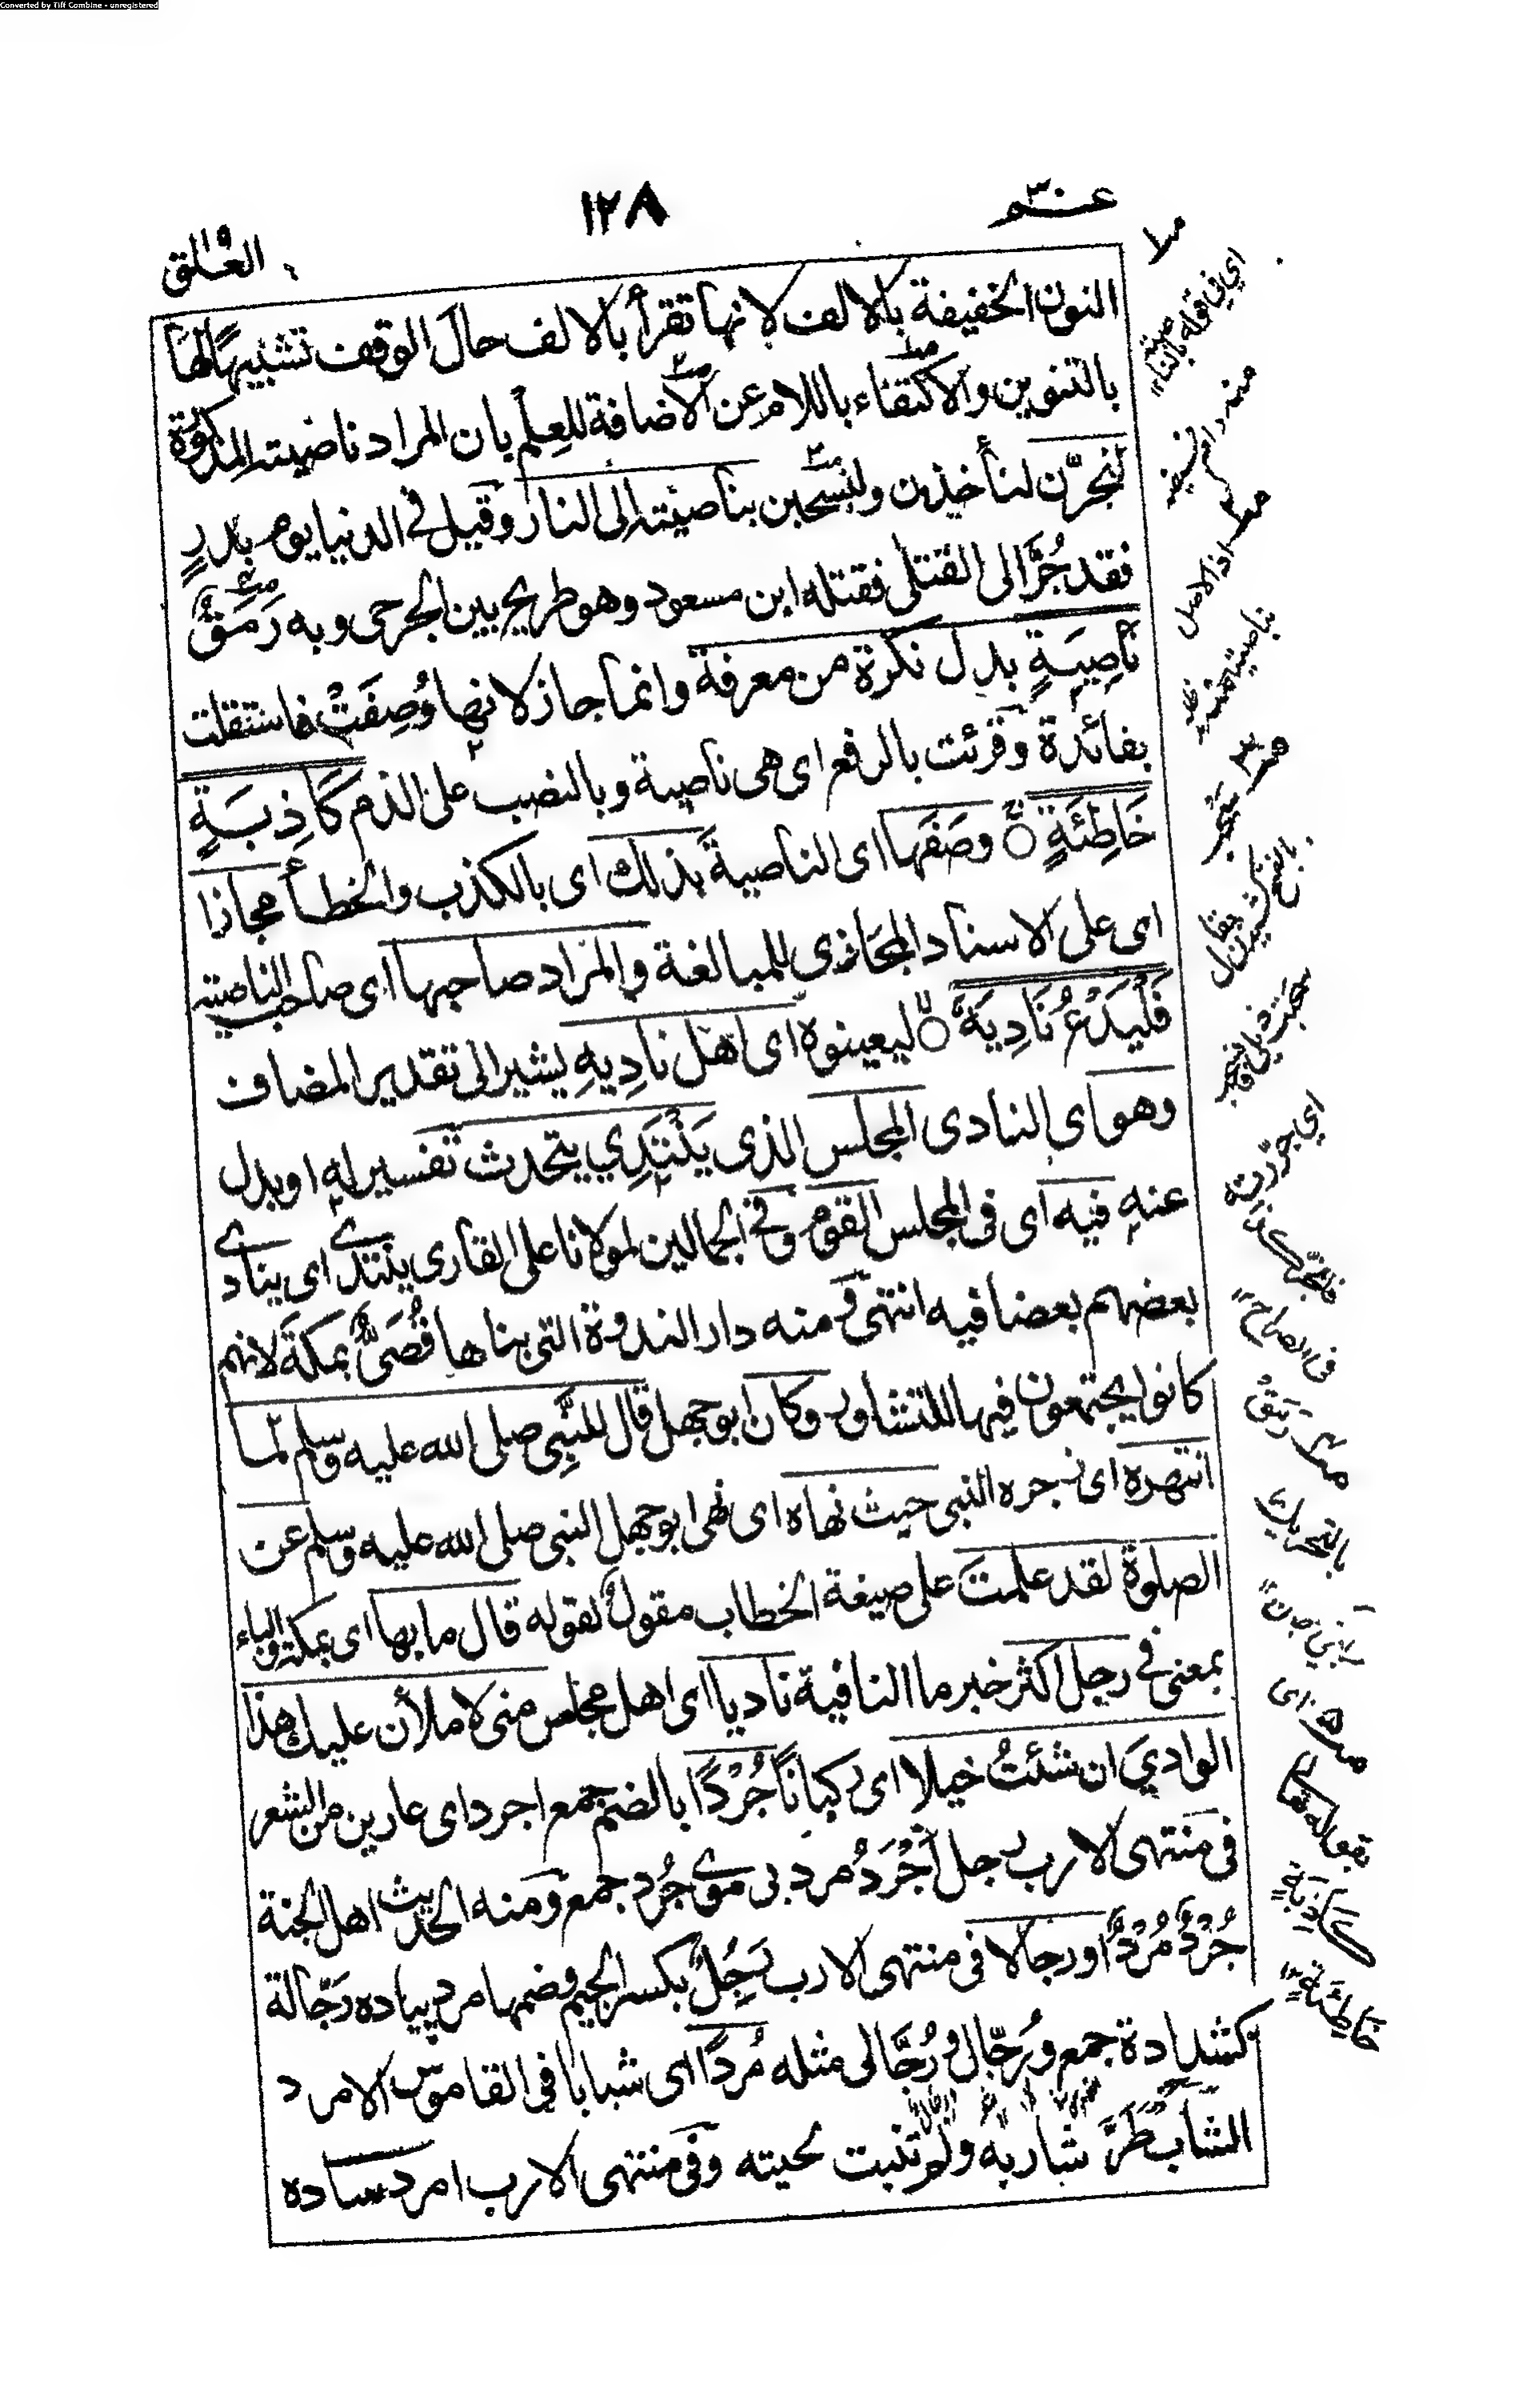 Converted by Tiff Combine - unregistered
عـم ٣٠
١٢٨
العلق
النون الخفيفة بالالف لانها تقرأ بالالف حال الوقف تشبيها لها
بالتنوين والاكتفاء باللام عن الاضافة للعلم بان المراد ناصيته المذكورة
لنجرّن لنأخذن ولنسحبن بناصيته الى النار وقيل فى الدنيا يوم بدرٍ
فقد جُرَّ الى القتلى فقتله ابن مسعود وهو طريح بين الجرحى وبه رَمَقٌ
نَاصِيَةٍ بدل نكرة من معرفة وانما جاز لانها وُصِفَتْ فاستقلت
بفائدة وقرئت بالرفع اى هى ناصية وبالنصب على الذم كَاذِبَةٍ
خَاطِئَةٍ وصَفَهَا اى الناصيةَ بذلك اى بالكذب والخطأ مجازا
اى على الاسناد المجازى للمبالغة والمراد صاحبها اى صاحب الناصية
فَلْيَدْعُ نَادِيَهٗ ليعينوه اى اهل نادِيهِ يشير الى تقدير المضاف
وهو اى النادى المجلس الذى يَنْتَدِي يتحدث تفسير له او بدل
عنه فيه اى فى المجلس القوم وفى الجمالين لمولانا على القارى ينتدى اى ينادى
بعضهم بعضا فيه انتهى ومنه دار الندوة التى بناها قُصَىٌّ بمكةَ لانهم
كانوا يجتمعون فيها للتشاور وكان ابوجهل قال للنَّبِى صلى الله عليه وسلم لما
انتهره اى زجره النبى حيث نهاه اى نهى ابوجهل النبى صلى الله عليه وسلم عن
الصلوة لقد علمتَ على صيغة الخطاب مقولٌ لقوله قال ما بها اى بمكة والباء
بمعنى فى رجل اكثر خبر ما النافية ناديا اى اهل مجلس منى لاملأن عليك هذا
الوادي ان شئتُ خيلا اى ركبانًا جُرْدًا بالضم جمع اجرد اى عارين من الشعر
فى منتهى الارب رجل اَجْرَدُ مرد بى موى جُرد جمع ومنه الحديث اهل الجنة
جُرْدٌ مُرْدٌ او رجالا فى منتهى الارب رَجِلٌ بكسر الجيم وضمها مرد پياده رَجّالة
كشدادة جمع ورُجّال ورُجَّالى مثله مُردًا اى شبابا فى القاموس الامرد
الشابّ طَرَّ شاربه ولم تنبت لحيته وفى منتهى الارب امرد ساده
اي في قوله بالناصية
منه
اذ الاصل
بناصيته
اي جررته
فى الصراح
رمق
بالتحريك
اى
بقوله تعالى
كَاذِبَةٍ
خَاطِئَةٍ